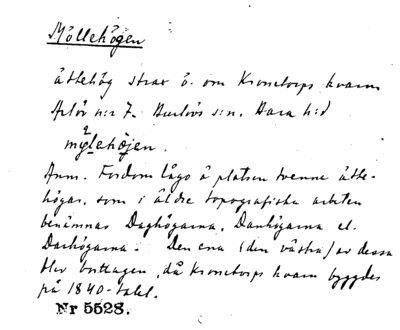 Möllehögen
ättehög strax ö. om Kronetorps kvarn
Arlöv n:r 7. Burlövs s:n. Bara h:d
Anm. Fordom lågo å platsen tvenne ätte-
högar, som i äldre topografiska arbeten
benämnas Daghögarna, Danhögarna el.
Darhögarna. Den ena (den västra) av dessa
blev borttagen, då Kronetorps kvarn byggdes
på 1840-talet.
Nr 5528.